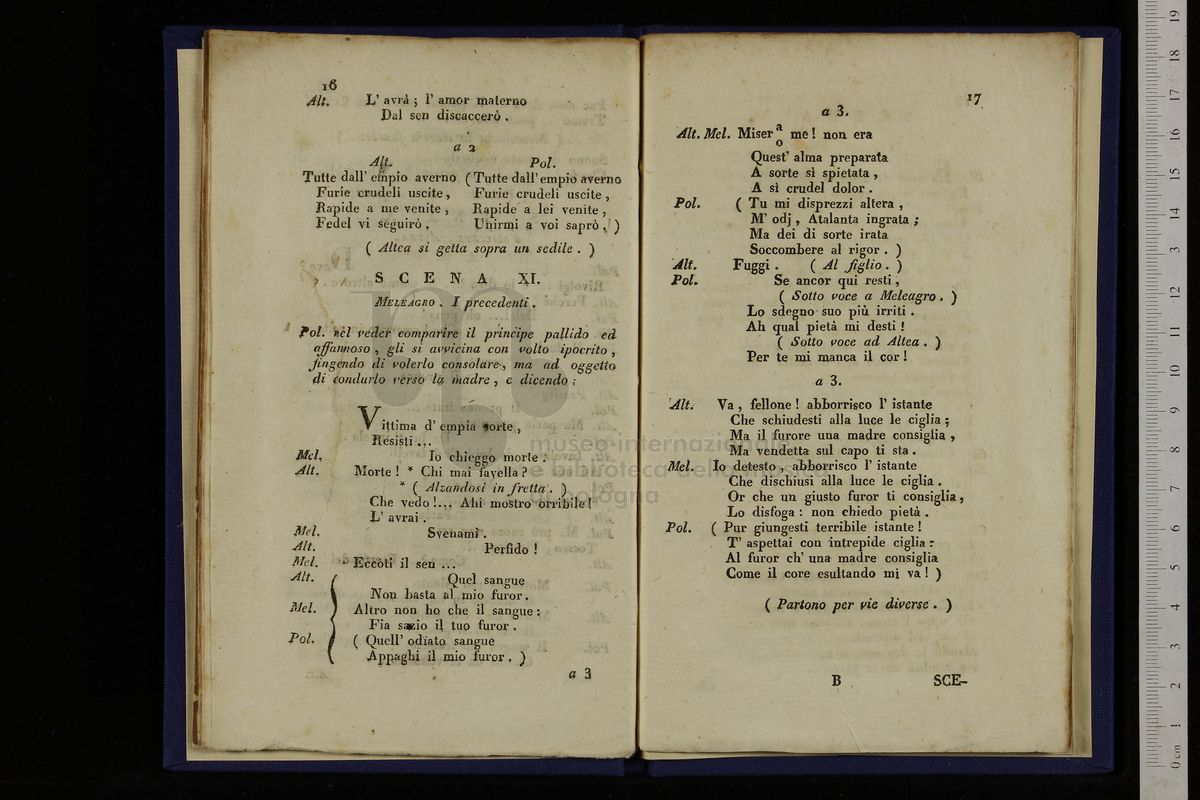 16
Alt. L' avrà ; l' amor materno
Dal sen discaccerò .
a 2
Alt. Pol.
Tutte dall' empio averno ( Tutte dall' empio averno
Furie crudeli uscite , Furie crudeli uscite ,
Rapide a me venite , Rapide a lei venite ,
Fedel vi seguirò . Unirmi a voi saprò . )
( Altea si getta sopra un sedile . )
SCENA XI.
MELEAGRO . I precedenti .
Pol. nel veder comparire il principe pallido ed
affannoso , gli si avvicina con volto ipocrito ,
fingendo di volerlo consolare , ma ad oggetto
di condurlo verso la madre , e dicendo :
Vittima d' empia sorte ,
Resisti ...
Mel. Io chieggo morte :
Alt. Morte ! * Chi mai favella ?
* ( Alzandosi in fretta . )
Che vedo !... Ahi mostro orribile !
L' avrai .
Mel. Svenami .
Alt. Perfido !
Mel. Eccoti il sen ...
Alt. Quel sangue
Non basta al mio furor .
Mel. Altro non ho che il sangue :
Fia sazio il tuo furor .
Pol. ( Quell' odiato sangue
Appaghi il mio furor . )
a 3
17
a 3.
Alt. Mel. Miser a o me ! non era
Quest' alma preparata
A sorte sì spietata ,
A sì crudel dolor .
Pol. ( Tu mi disprezzi altera ,
M' odj , Atalanta ingrata ;
Ma dei di sorte irata
Soccombere al rigor . )
Alt. Fuggi . ( Al figlio . )
Pol. Se ancor qui resti ,
( Sotto voce a Meleagro . )
Lo sdegno suo più irriti .
Ah qual pietà mi desti !
( Sotto voce ad Altea . )
Per te mi manca il cor !
a 3.
Alt. Va , fellone ! abborrisco l' istante
Che schiudesti alla luce le ciglia ;
Ma il furore una madre consiglia ,
Ma vendetta sul capo ti sta .
Mel. Io detesto , abborrisco l' istante
Che dischiusi alla luce le ciglia .
Or che un giusto furor ti consiglia ,
Lo disfoga : non chiedo pietà .
Pol. ( Pur giungesti terribile istante !
T' aspettai con intrepide ciglia :
Al furor ch' una madre consiglia
Come il core esultando mi va ! )
( Partono per vie diverse . )
B SCE-
museo internazionale
e biblioteca della musica
di bologna
0 cm 1 2 3 4 5 6 7 8 9 10 11 12 13 14 15 16 17 18 19